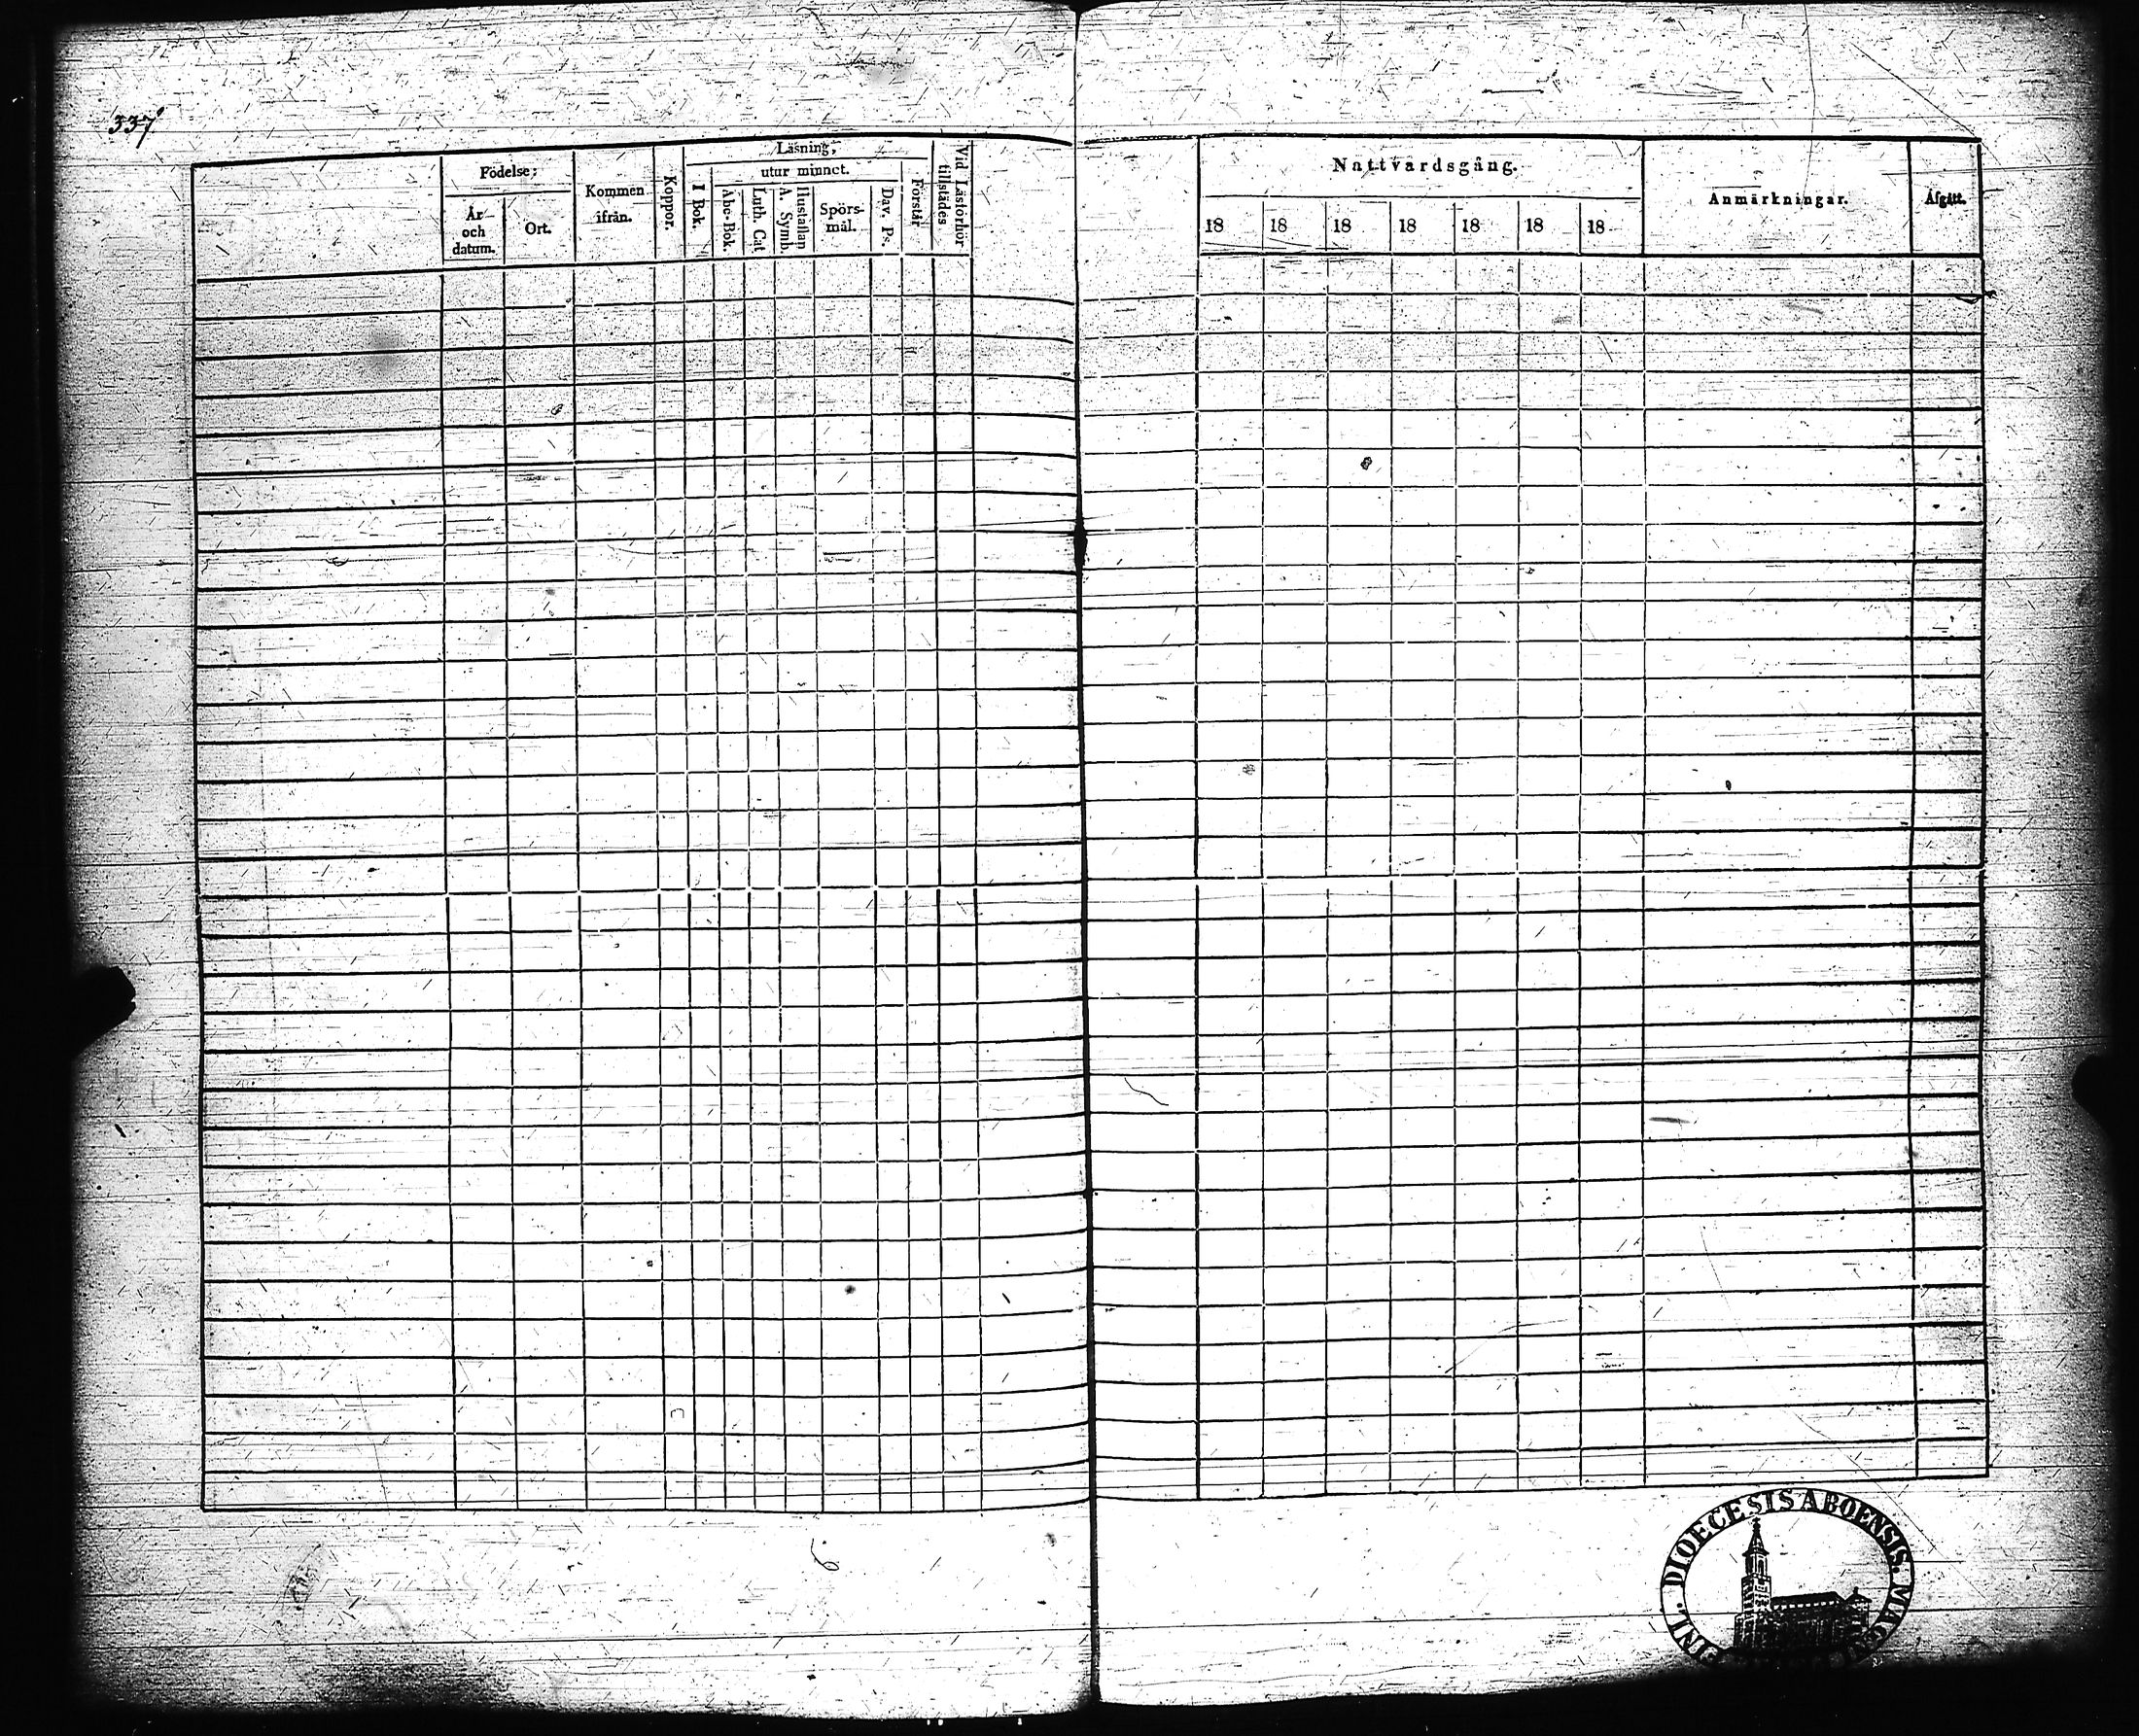 337
Födelse:
År och datum.
Ort.
Kommen ifrån.
Koppor.
Läsning,
utur minnet.
I Bok.
Abc-Bok.
Luth. Cat
A. Symb.
Hustaflan
Spörs-mål.
Dav. Ps.
Förstår
Vid Läsförhör tillstädes
Nattvardsgång.
18 18 18 18 18 18 18
Anmärkningar.
Afgått.
DIOECESIS ABOENSIS.